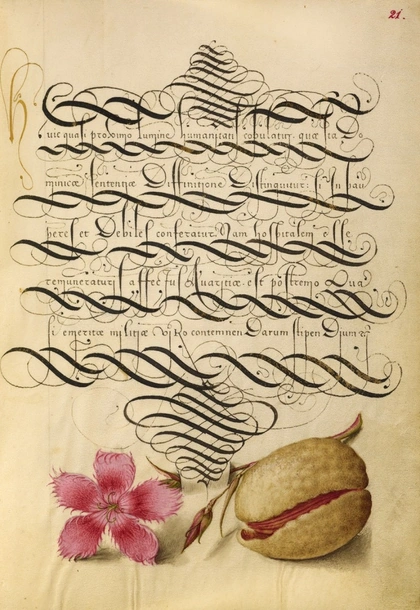 21.
Huic quasi proximo lumine humanitati copulatur. quæ ita Do
minicæ sententiæ Diffinitione Distinguitur: si In pau
peres et Debiles conferatur. Nam hospitalem esse
remuneraturis affectus Avaritiæ est postremo Qua
si emeritæ militiæ viro contemnen Darum stipen Dium